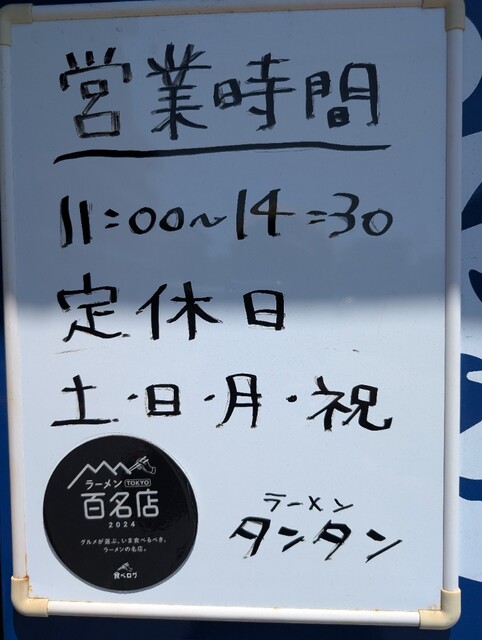 営業時間
11:00~14:30
定休日
土・日・月・祝
ラーメン TOKYO
百名店
2024
グルメが選ぶ、いま食べるべき、
ラーメンの名店。
食べログ
ラーメン
タンタン